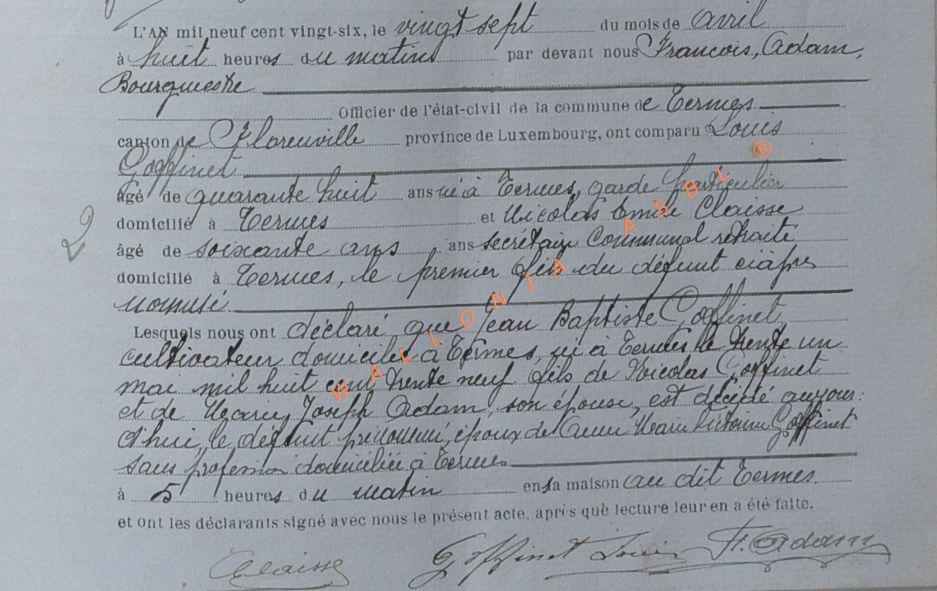 L'AN mil neuf cent vingt-six, le vingt sept du mois de avril
à huit heures du matin par devant nous Francois, Adam,
Bourgmestre
Officier de l'état-civil de la commune de Termes
canton de Florenville province de Luxembourg, ont comparu Louis
Goffinet
âgé de quarante huit ans né à Termes, garde particulier
domicilié à Termes et Nicolas Emile Claisse
âgé de soixante ans ans secrétaire communal retraité
domicilié à Termes, le premier fils du défunt ciaprès
nommé.
Lesquels nous ont déclaré que Jean Baptiste Goffinet
cultivateur domicilié à Termes, né à Termes le trente un
mai mil huit cent trente neuf fils de Nicolas Goffinet
et de Marie Joseph Adam, son épouse, est décédé aujour:
d'hui, le défunt prénommé, époux de Anne Marie Victoire Goffinet
sans profession domiciliée à Termes
à 5 heures du matin en sa maison au dit Termes
et ont les déclarants signé avec nous le présent acte, après que lecture leur en a été faite.
Claisse Goffinet Louis F. Adam
2
WALLONIA ASBL ®